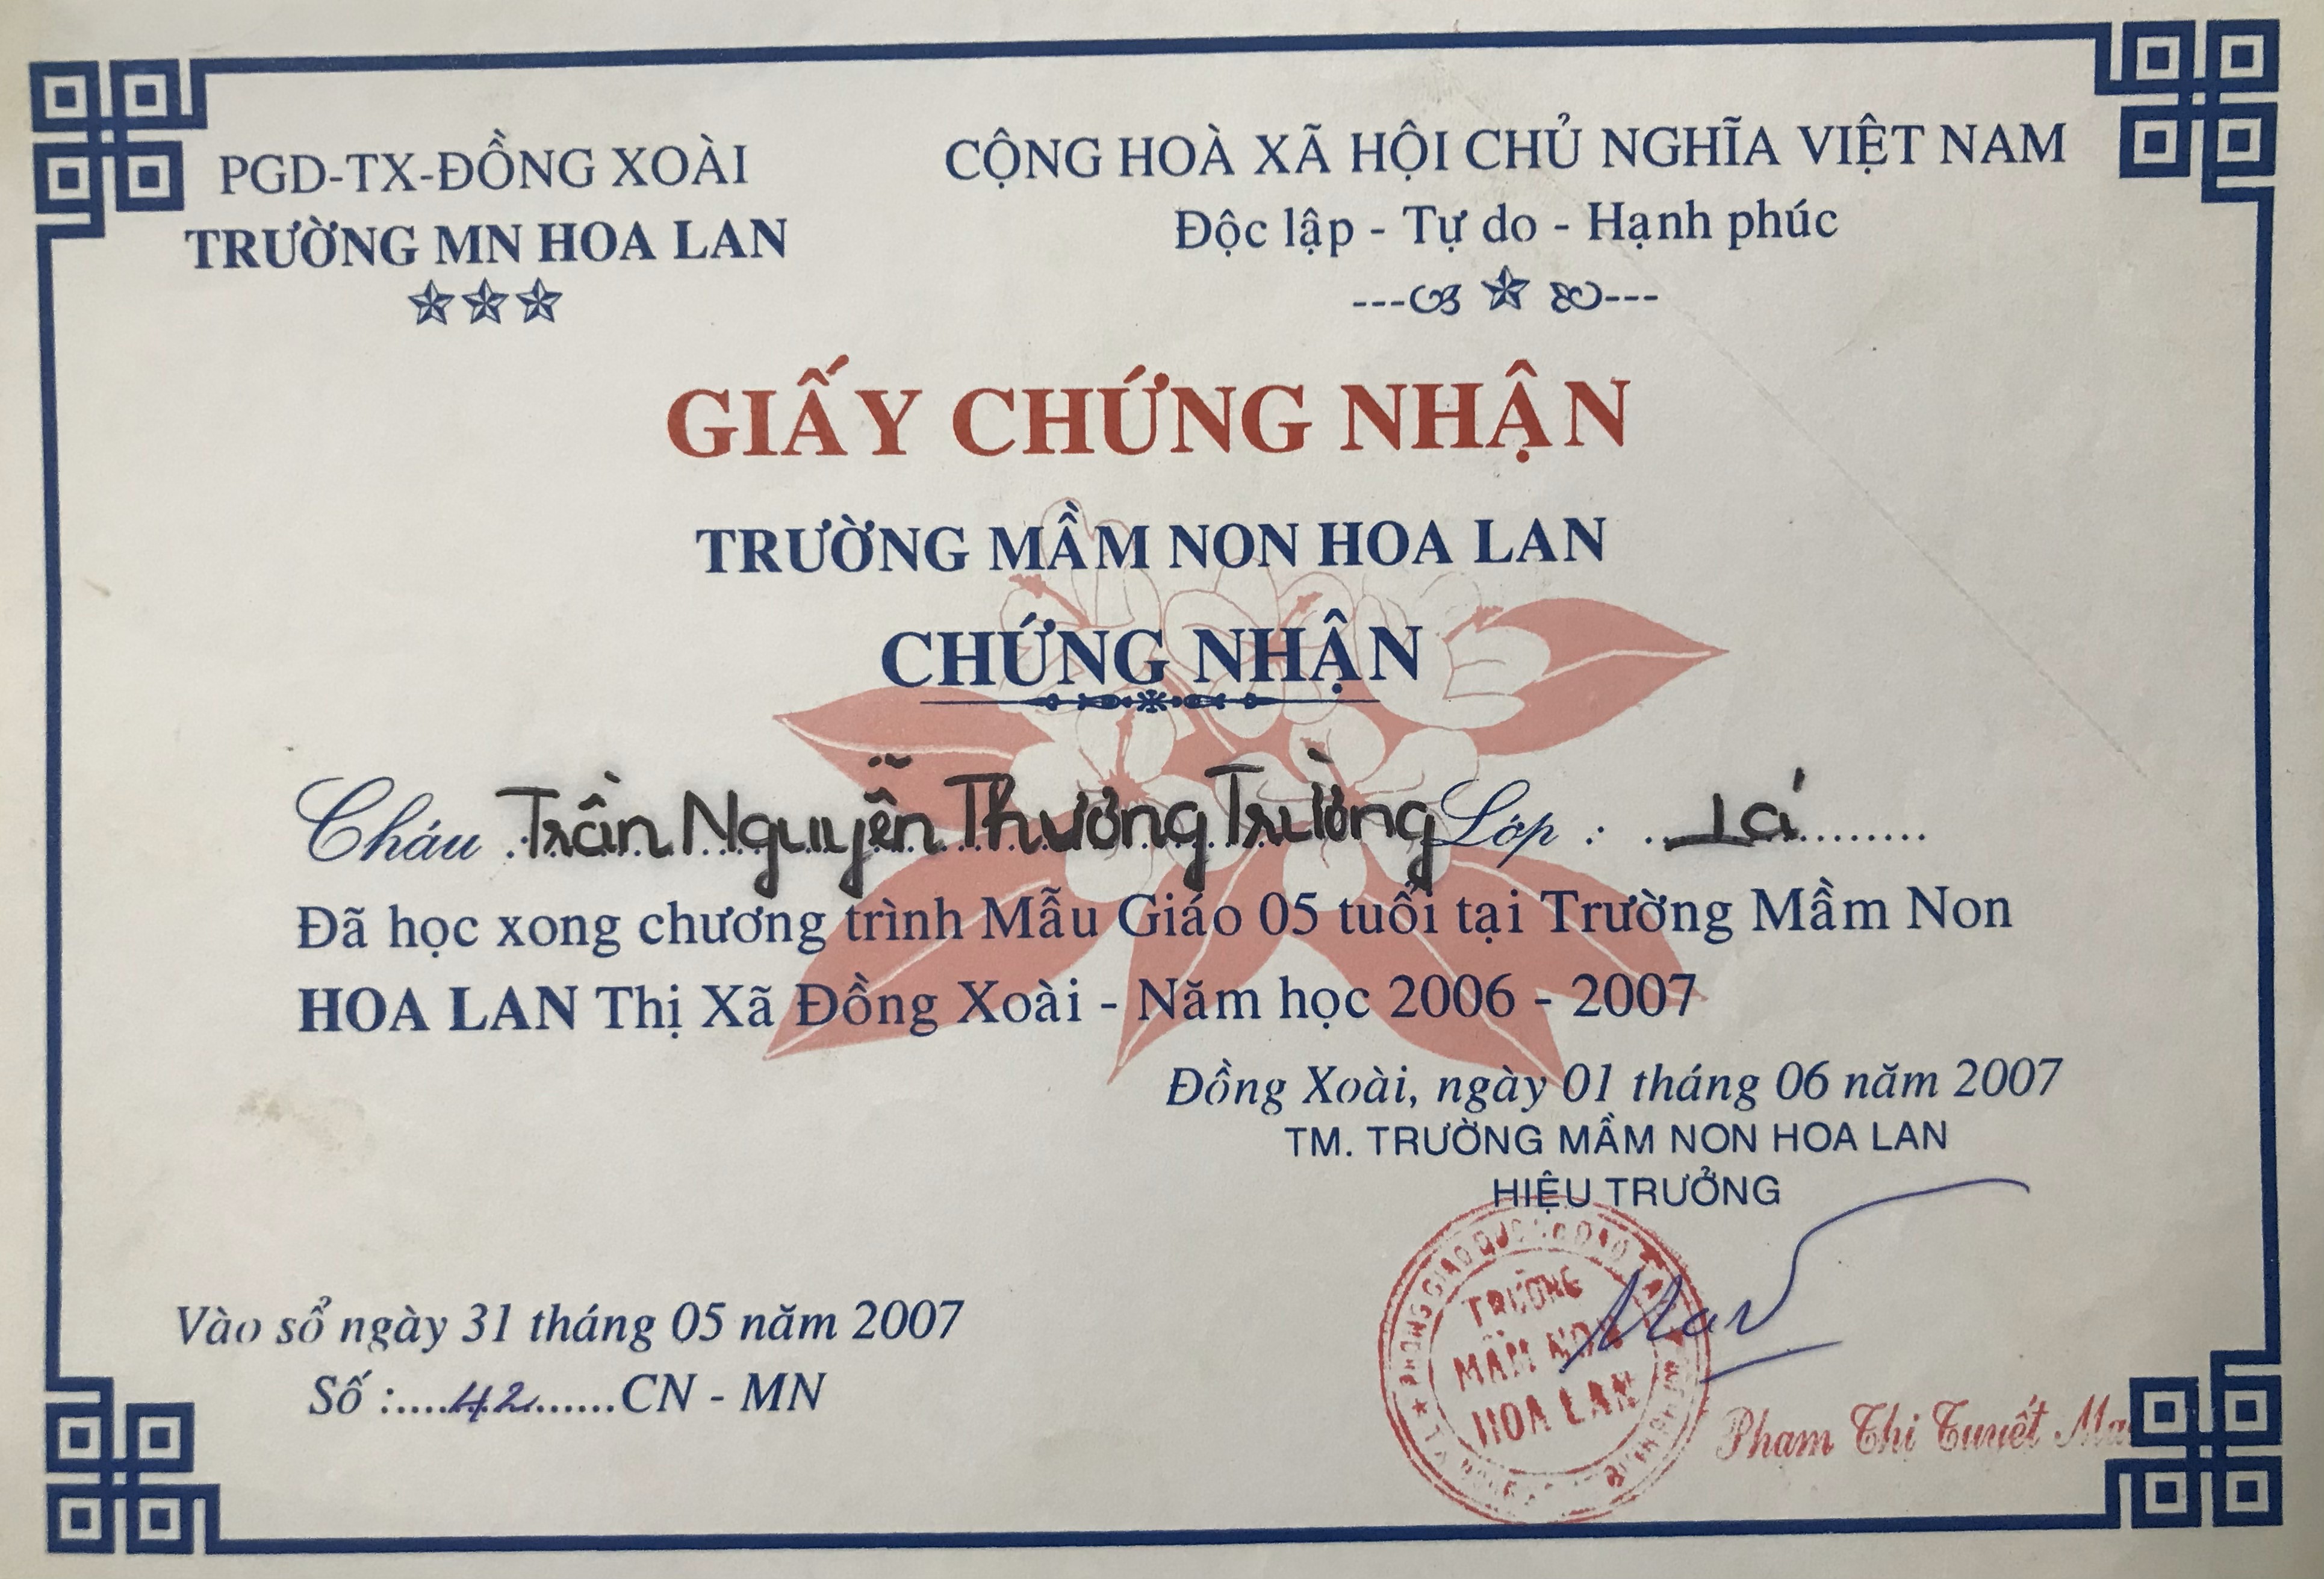 PGD-TX-ĐỒNG XOÀI
TRƯỜNG MN HOA LAN
CỘNG HOÀ XÃ HỘI CHỦ NGHĨA VIỆT NAM
Độc lập - Tự do - Hạnh phúc
GIẤY CHỨNG NHẬN
TRƯỜNG MẦM NON HOA LAN
CHỨNG NHẬN
Cháu Trần Nguyễn Thương Trường Lớp : Lá
Đã học xong chương trình Mẫu Giáo 05 tuổi tại Trường Mầm Non
HOA LAN Thị Xã Đồng Xoài - Năm học 2006 - 2007
Đồng Xoài, ngày 01 tháng 06 năm 2007
TM. TRƯỜNG MẦM NON HOA LAN
HIỆU TRƯỞNG
TRƯỜNG
MẦM NON
HOA LAN
Phạm Thị Tuyết
Vào sổ ngày 31 tháng 05 năm 2007
Số :....42......CN - MN